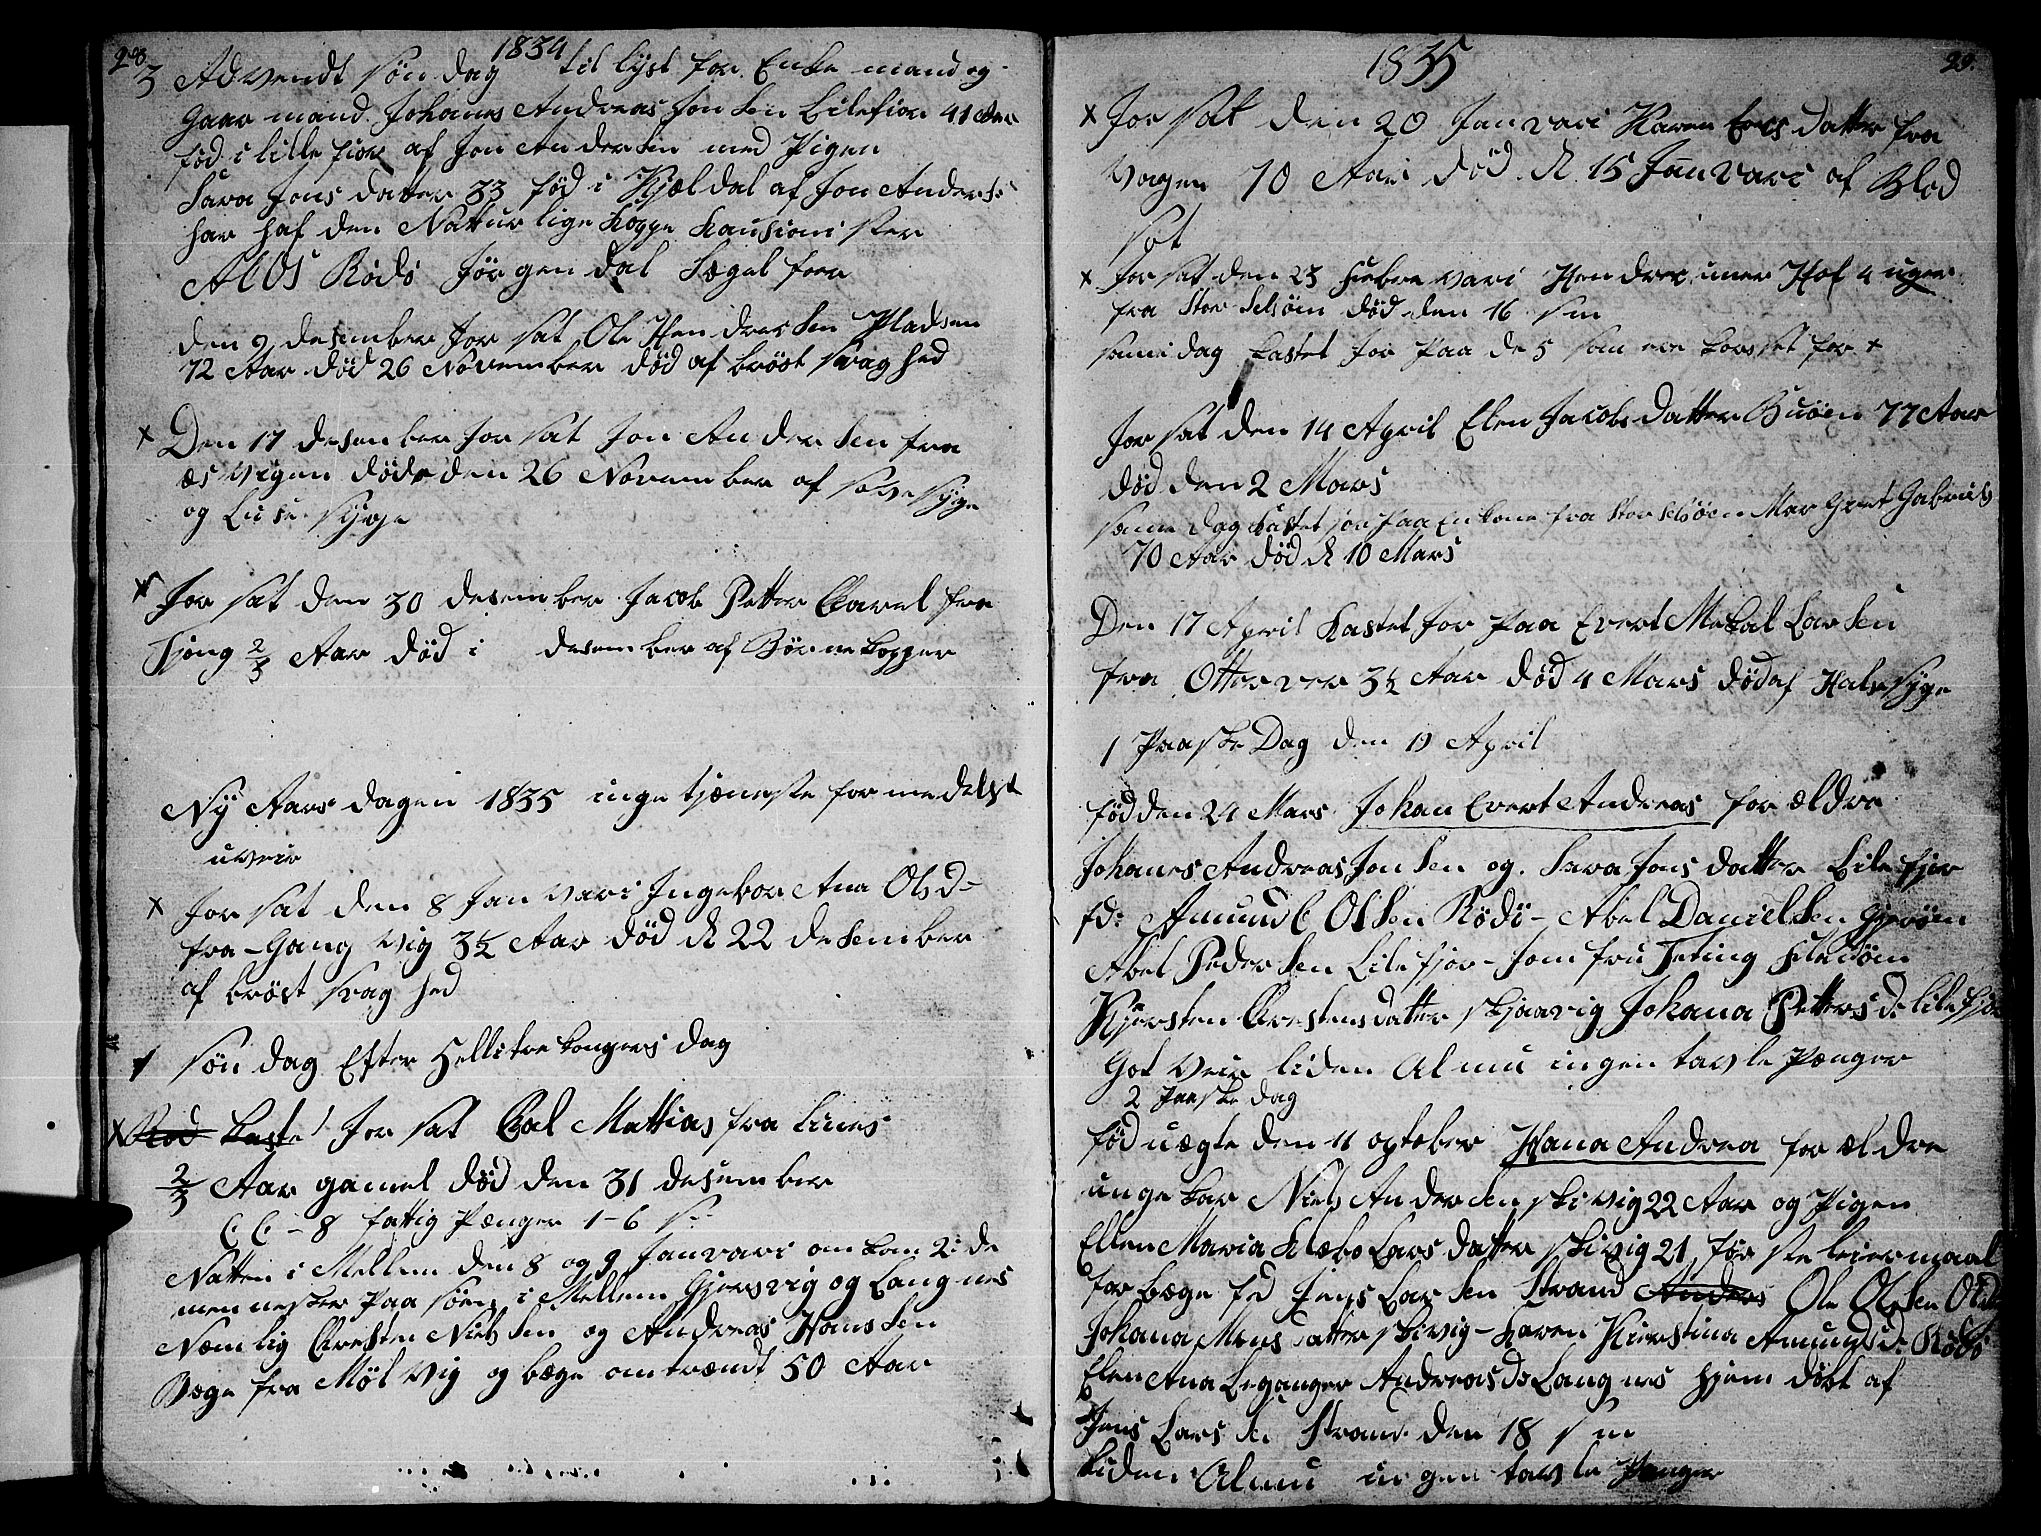 28
1834
3 Advendt søndag til lyst for Enke mand og
Gaar mand Johanes Andreas Jonsen Lilefior 41 Aar
fød i lille fior af Jon Andersen med Pigen
Sara Jons datter 33 fød i Kjældal af Jon Anders:
har haf den Natturlige koppe kausioni ster
Rødø Jørgen dal
den 9 desember Jor sat Ole Hendresen Pladsen
72 Aar død 26 November død af brøst svaghed
x Den 17 desember Jor sat Jon Andersen fra
æsvigen døde den 26 November af
og
x Jor sat den 30 desember Jacob Petter Carel fra
Tjong 2/3 Aar død i desember af Børne kopper
Ny Aars dagen 1835 inge tjæneste formedelst
uveir
x Jor sat den 8 Janvari Ingebor Ana Olsd-
fra Gang vig 3½ Aar død d 22 desember
af brøst svaghed
1 søndag Efter Hellitre kongers dag
x kaste Jor sat Cal Mattias fra
2/3 Aar gamel død den 31 desember
C C - 8 fattig Pænger 1-6 s
Natten i Mellem den 8 og 9 Janvari omkom 2 de
mennesker Paa søen i Mellem Gjersvig og Langnes
Nemlig Cresten Nielsen og Andreas Hansen
Bege fra Mølvig og bege omtrændt 50 Aar
29.
1835
x Jor sat den 20 Janvari Karen datter fra
Vagen 70 Aar død d 15 Janvari af Blod
sot
x Jor sat den 23 Febrevari Hendrec Hof 4 uger
fra Stor Selsøin død den 16 sm
same dag kastet Jor Paa de 5 som ere korsset for x
Jor sat den 14 April Elen Jacobs datter Buøen 77 Aar
død den 2 Mars
same dag kastet jor paa En kone fra Stor selsøen Margret Gabriels
70 Aar død d 10 Mars
Den 17 April kastet Jor Paa Evert Mekal Larsen
fra Otterver 3½ Aar død 4 Mars død af Halssyge
1 Paaske Dag den 19 April
fød den 24 Mars Johan Evert Andreas for ældre
Johanes Andreas Jonsen og Sara Jons datter Lile fjor
fd: Amund Olsen Rødø - Abel Danielsen Gjerøen
Abel Pedersen Lile fjor - Jomfru Teting
Kjersten Crestens datter Skjaavig Johana Petters d: lile fjor
Got veir liden Almu ingen tavle Pænger
2 Paaske dag
fød uægte den 11 october Hana Andrea for ældre
unge kar Niels Andersen Skivig 22 Aar og Pigen
Ellen Maria Klæbo Lars datter Skivig 21 første leiermaal
for bege fd Jens Larsen Strand Anders Ole Olsen
Johana Mons datter Skivig - karen Kierstina Amunds d: Rødø
Elen Ana Leganger Andreas d: Langnes hjem døbt af
Jens Larsen Strand den 18 sm
Liden Almu ingen tavle Pænger